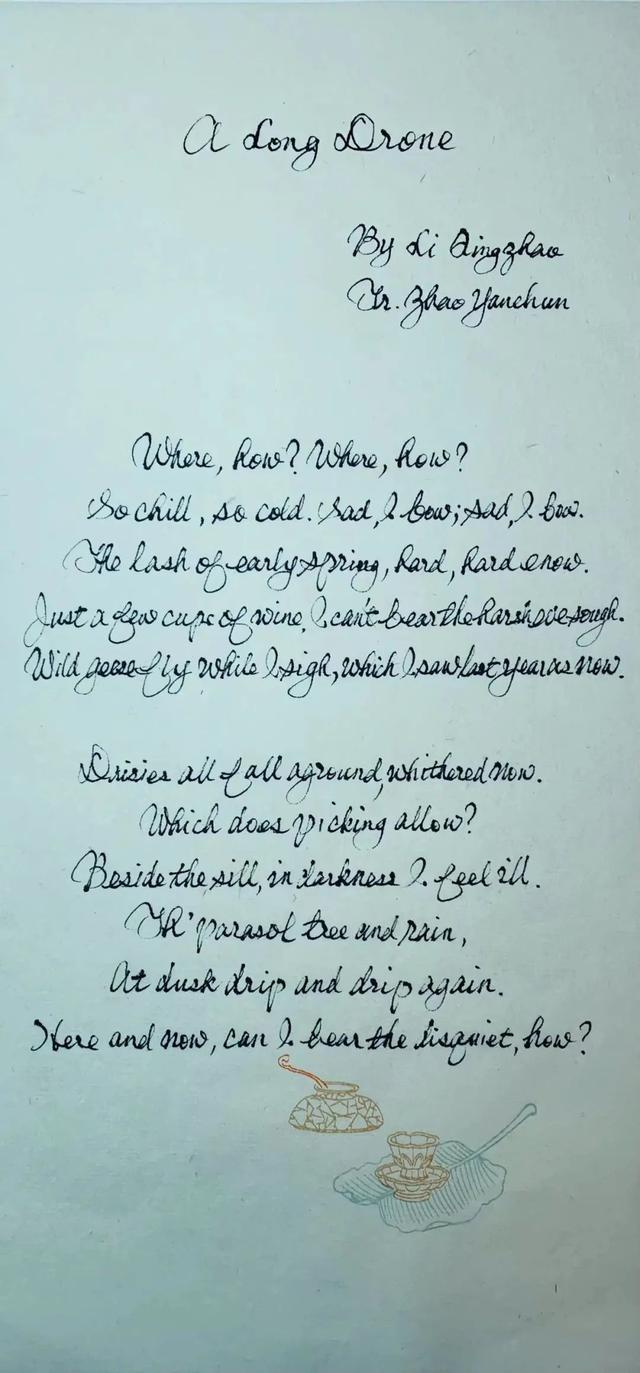 A Long Drone
By Li Qingzhao
Tr. Zhao Yanchun
Where, how? Where, how?
So chill, so cold. Sad, I bow; sad, I bow.
The lash of early spring, hard, hard enow.
Just a few cups of wine, I can't bear the harsh sough.
Wild geese fly while I sigh, which I saw last year as now.
Daisies all fall aground, whithered now.
Which does picking allow?
Beside the sill, in darkness I feel ill.
Th' parasol tree and rain,
At dusk drip and drip again.
Here and now, can I bear the disquiet, how?